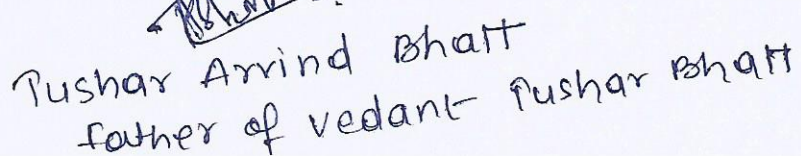 Tushar Arvind Bhatt
father of vedant Tushar Bhatt